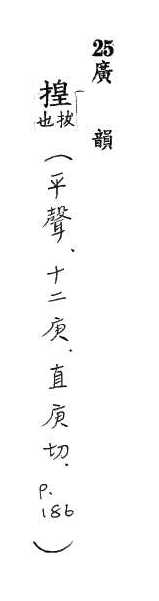 25廣韻
揘拔也(平聲、十二庚、直庚切. p.186)